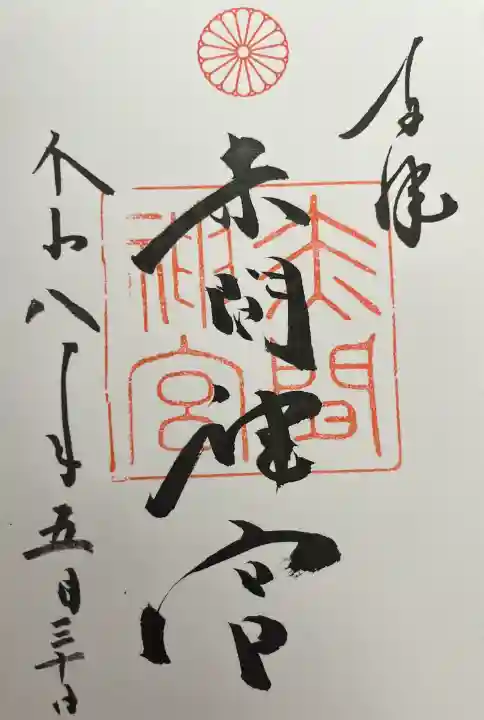 奉拝
赤間神宮
赤間
神宮
令和八年五月三十日